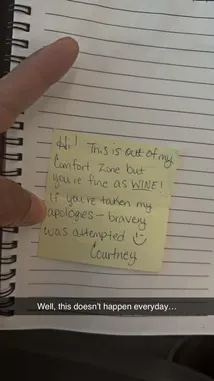 Hi! This is out of my
Comfort Zone but
you're fine as WINE!
If you're taken my
apologies - bravery
was attempted ☺
Courtney
Well, this doesn't happen everyday...